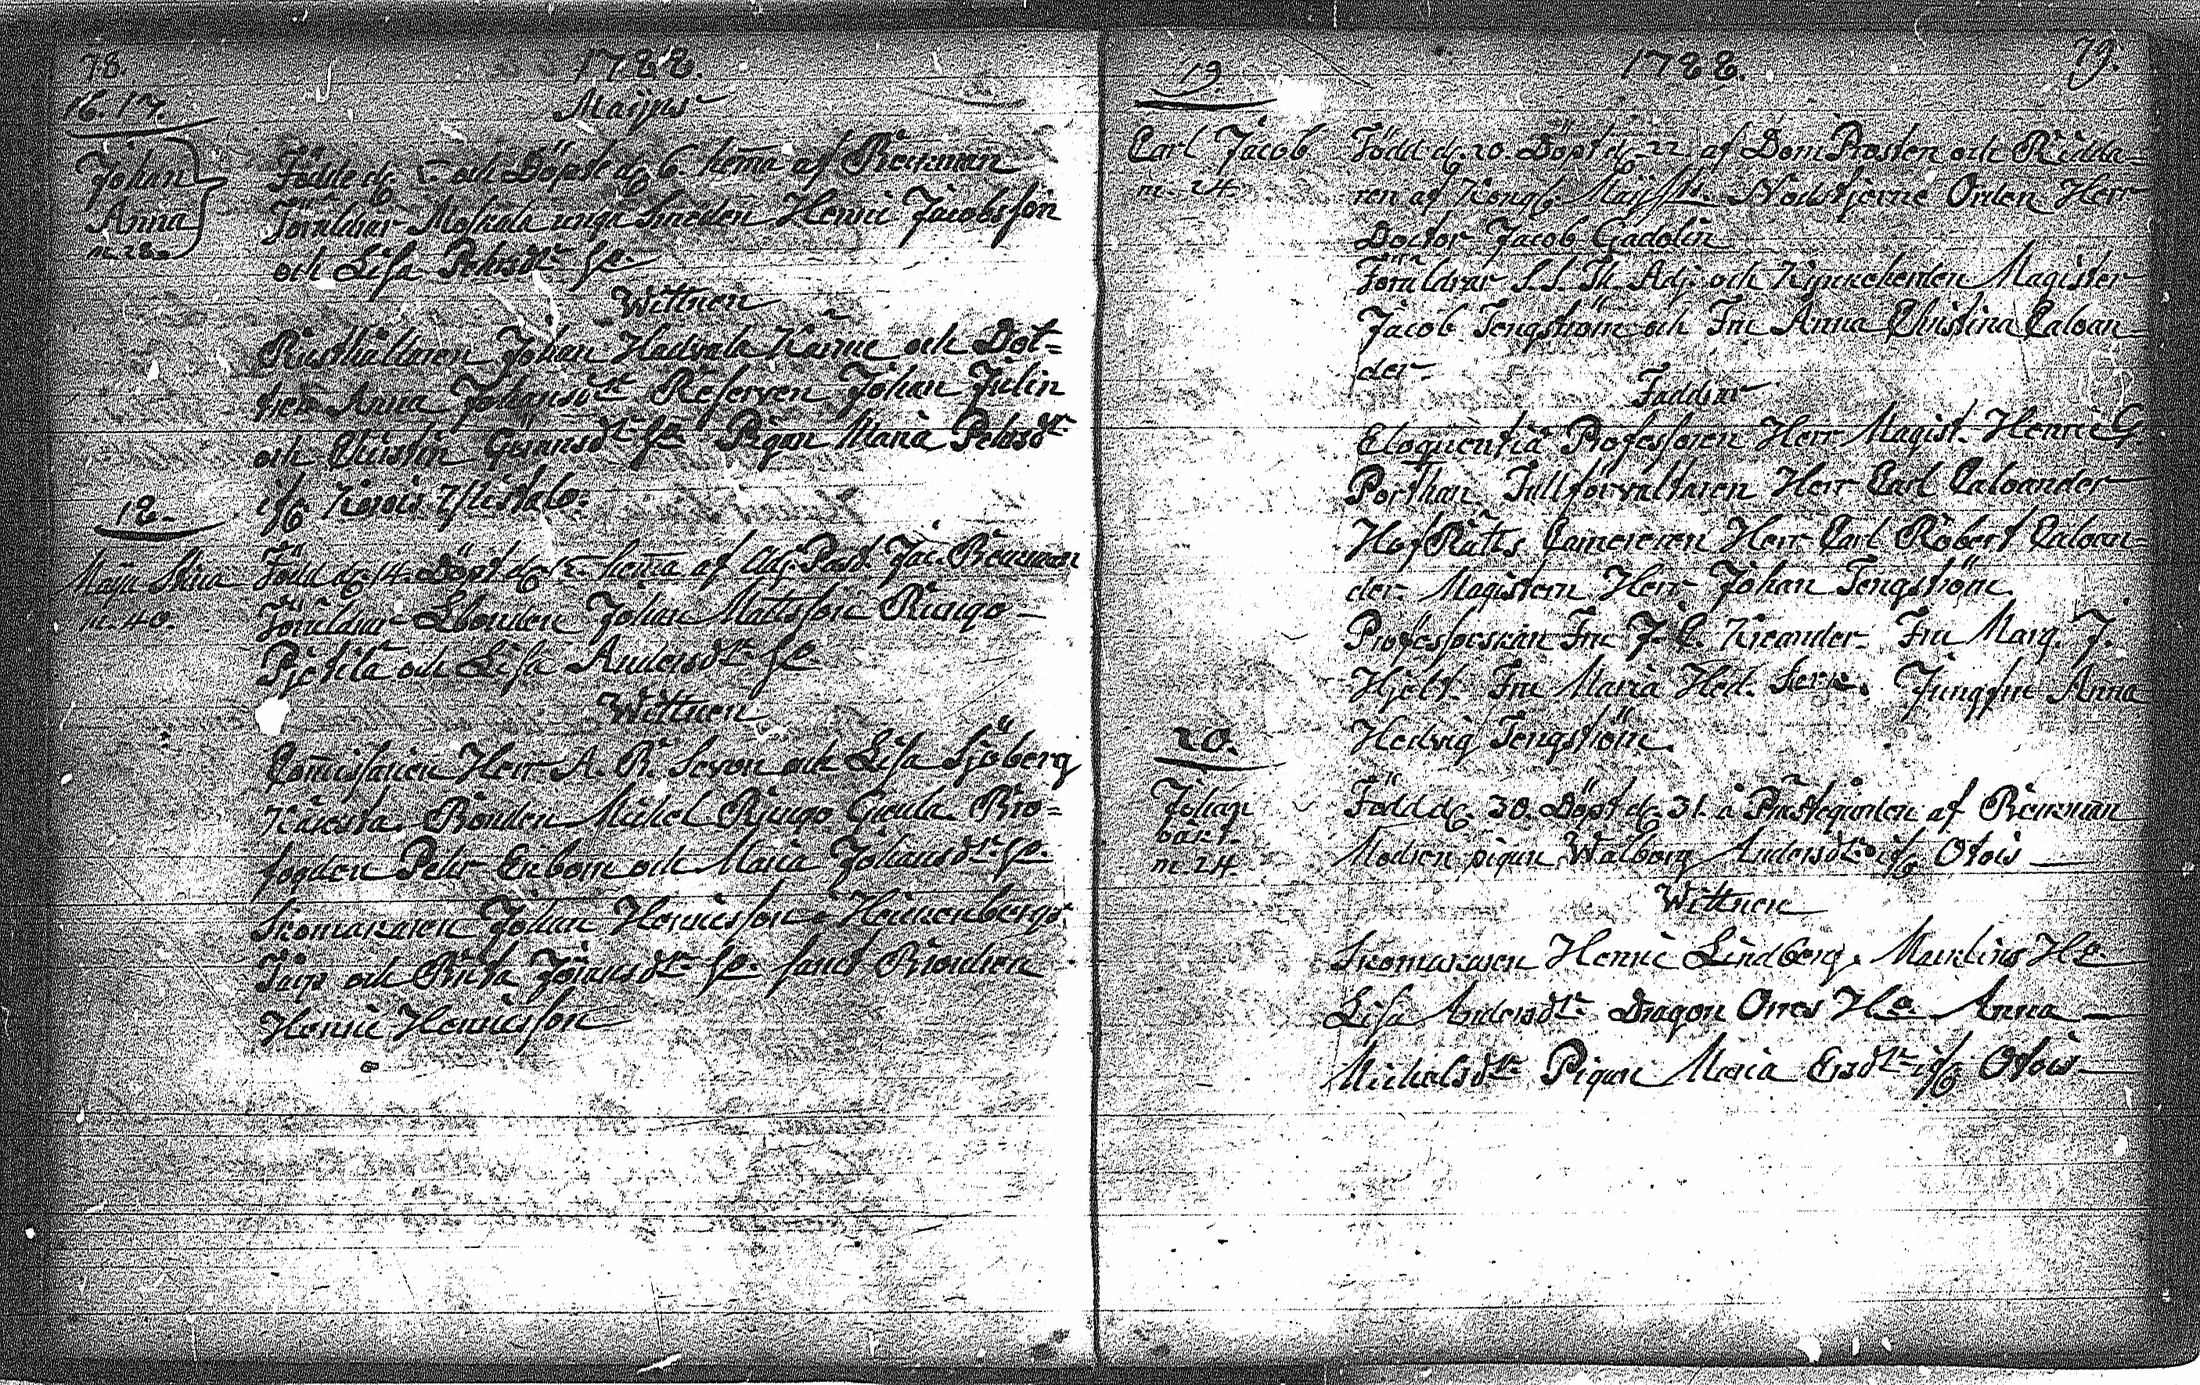 78.
1788.
Maijus
16. 17.
Johan
Anna
m. 28.
Födde d. 5. och Döpte d. 6. hema af Reenman
Föräldrar Moskala unga Smeden Henric Jacobsson
och Lisa Pehrsdr. H.
Wittnen
Rusthållaren Johan Hadvala Karrue och Dot=
tren Anna Johansdr Reserven Johan Julin
och Christin Göransdr H. Pigan Maria Pehrsdr
ifr.
18.
Maja Stina
m. 40.
Född d. 14. Döpt d. 15. hema af Adj. Past. Jac. Reenman
Föräldrar Lbonden Johan Mattsson Rungo
Pjetilä och Lisa Andersdr. H.
Wittnen
Commissarien Herr A. R. Sevon och Lisa Sjöberg
Käresta. Bonden Michel Rungo Greula. Bro=
fogden Pehr Enbom och Maria Johansdr. H.
Skomakaren Johan Henricsson i Heinenbergs
Torp och Brita Göransdr H. samt Brodren
Henric Henricsson
79.
1788.
19.
Carl Jacob
m. 24.
Född d. 20. Döpt d. 22 af Dom Prosten och Ridda=
ren af Kongl. Maij:sts. Nordstjerne Orden Herr
Doctor Jacob Gadolin
Föräldrar S. S. Th. Adj. och Kyrckoherden Magister
Jacob Tengström och Fru Anna Christina Caloan
der.
Faddrar
Eloquentiæ Professoren Herr Magist. Henric G.
Porthan Tullförvaltaren Herr Carl Caloander
HofRätts Camereren Herr Carl Robert Caloan=
der Magistern Herr Johan Tengström.
Professorskan Fru J. C. Kreander. Fru Marg. J.
Hjelt. Fru Maria Hed. Jungfru Anna
Hedvig Tengström.
20.
Johan
oäkt.
m. 24.
Född d. 30. Döpt d. 31. i Prästegården af Reenman
Modren pigan Walborg Andersdr. ifr. Otois
Wittnen
Skomakaren Henric Lindberg. Murkins H.
Lisa Andersdr. Dragon Orres H. Anna
Michelsdr. Pigan Maria Ersdr ifr. Otois